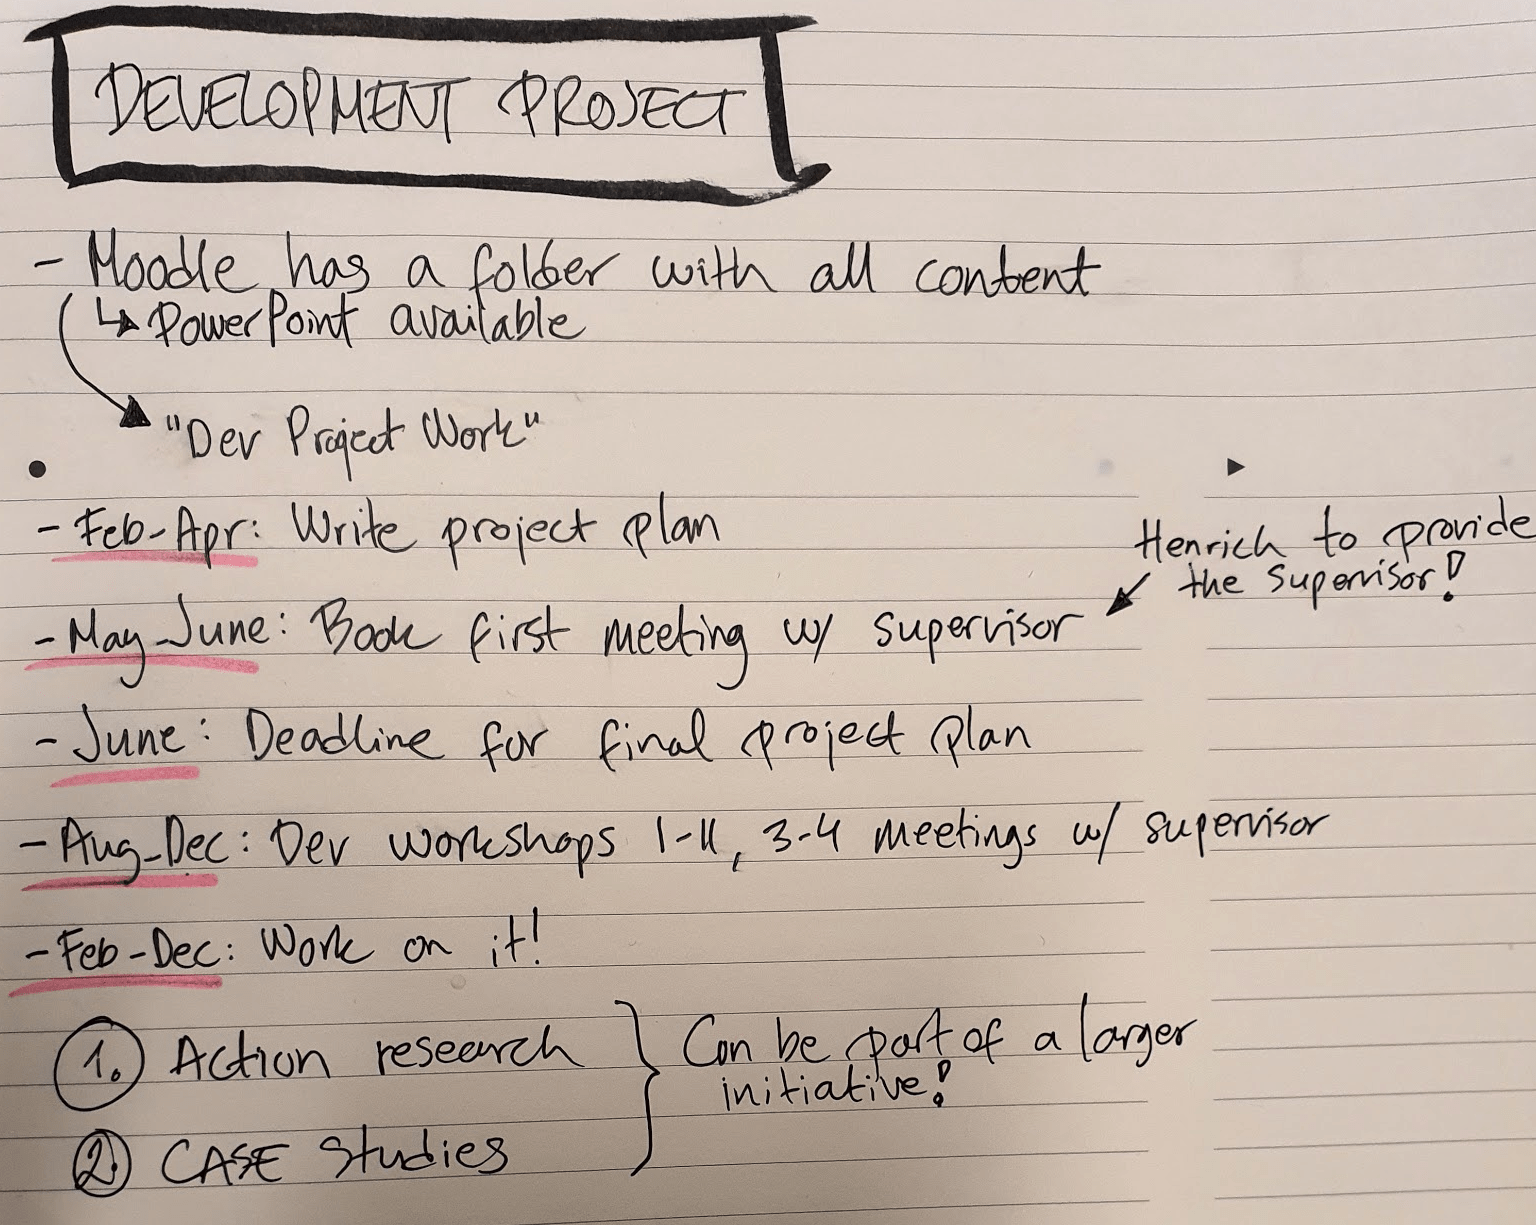 DEVELOPMENT PROJECT
- Moodle has a folder with all content
↳ PowerPoint available
"Dev Project Work"
- Feb-Apr: Write project plan
Henrich to provide
the supervisor!
- May-June: Book first meeting w/ supervisor
- June: Deadline for final project plan
- Aug-Dec: Dev workshops 1-11, 3-4 meetings w/ supervisor
- Feb-Dec: Work on it!
1. Action research
Can be part of a larger
initiative!
2. CASE Studies